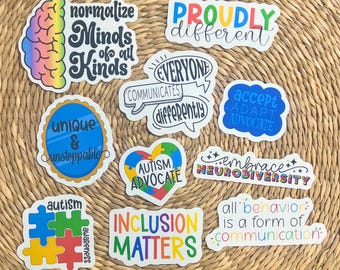 normalize
Minds
of all
Kinds
PROUDLY
different
EVERYONE
COMMUNICATES
differently
accept
ADAPT
ADVOCATE
unique
&
unstoppable
AUTISM
ADVOCATE
embrace
NEURODIVERSITY
autism
awareness
INCLUSION
MATTERS
all behavior
is a form of
communication